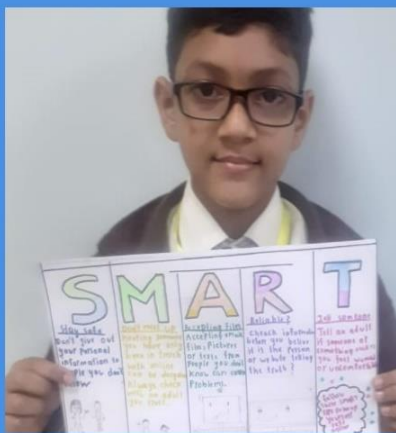 SMART
Stay safe
Don't give out
your personal
information to
people you don't
know
Don't meet up
meeting someone
you have only
been in touch
with online
can be dangerous
Always check
with an adult
you trust.
Accepting files
Accepting emails
files, Pictures
or texts from
people you don't
know can cause
Problems.
Reliable?
check information
before you believe
it is the person
or website telling
the truth?
Tell someone
Tell an adult
if someone or
something makes
you feel worried
or uncomfortable
Follow
these SMART
tips to keep
yourself
safe
online!